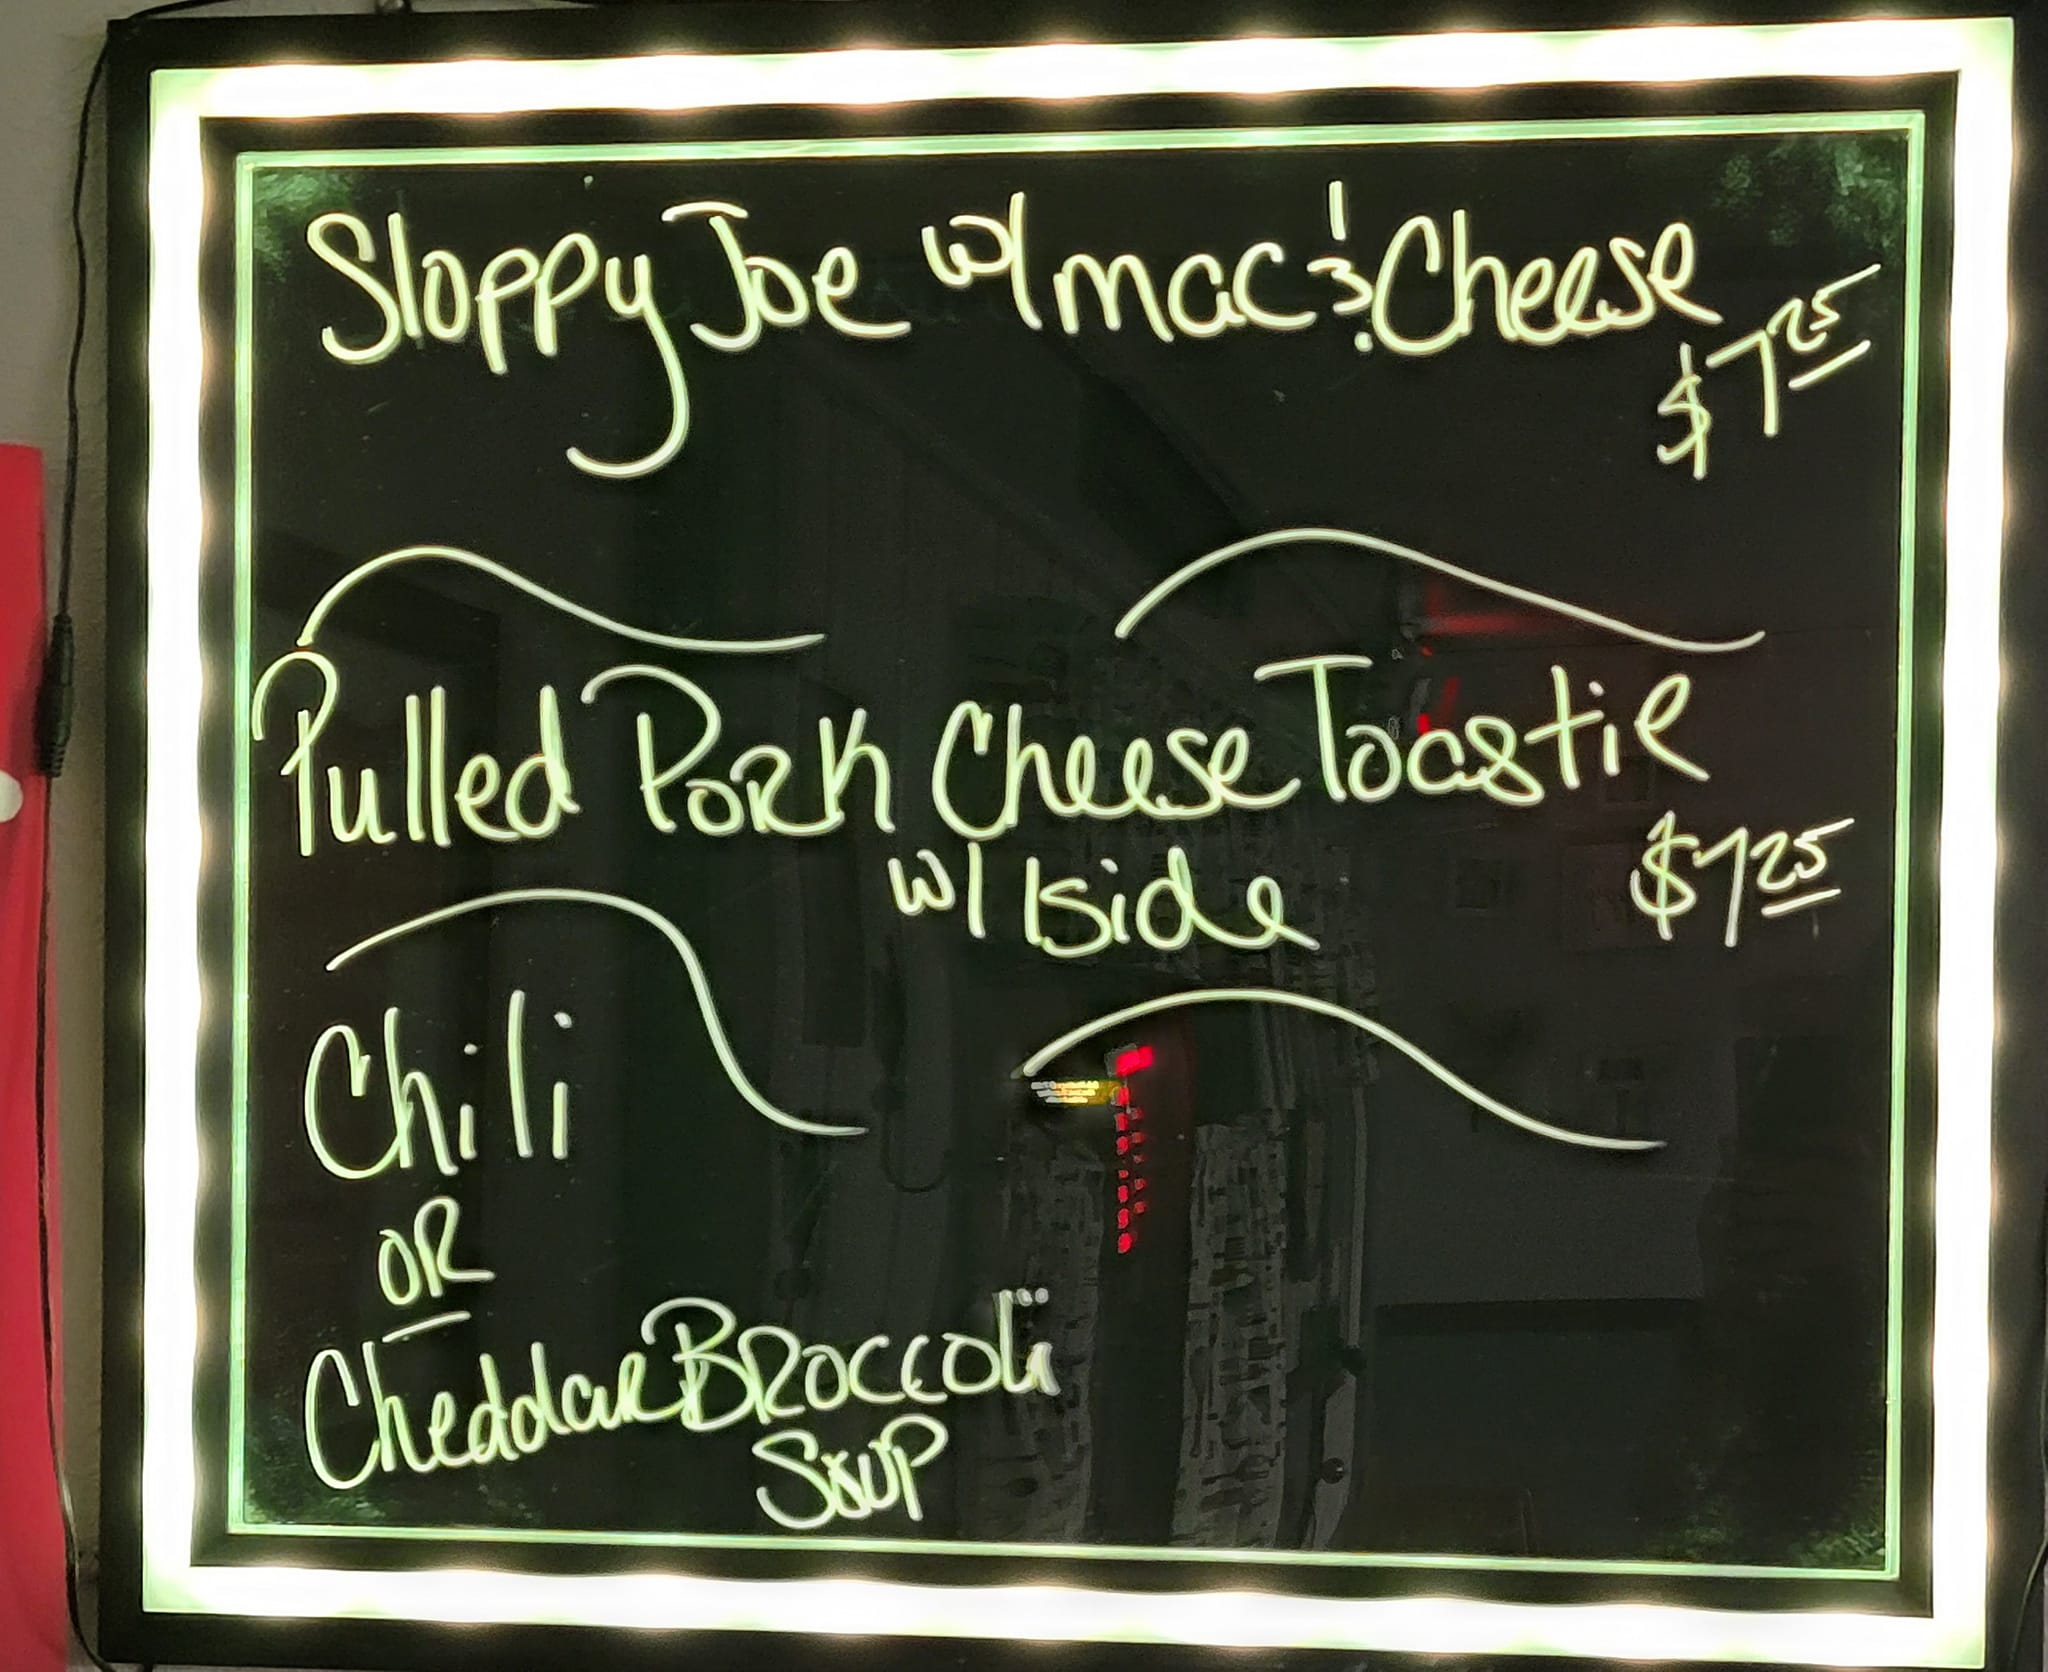 Sloppy Joe w/ mac & Cheese
$7.25
Pulled Pork Cheese Toastie
w/ 1 side
$7.25
Chili
OR
Cheddar Broccoli
Soup